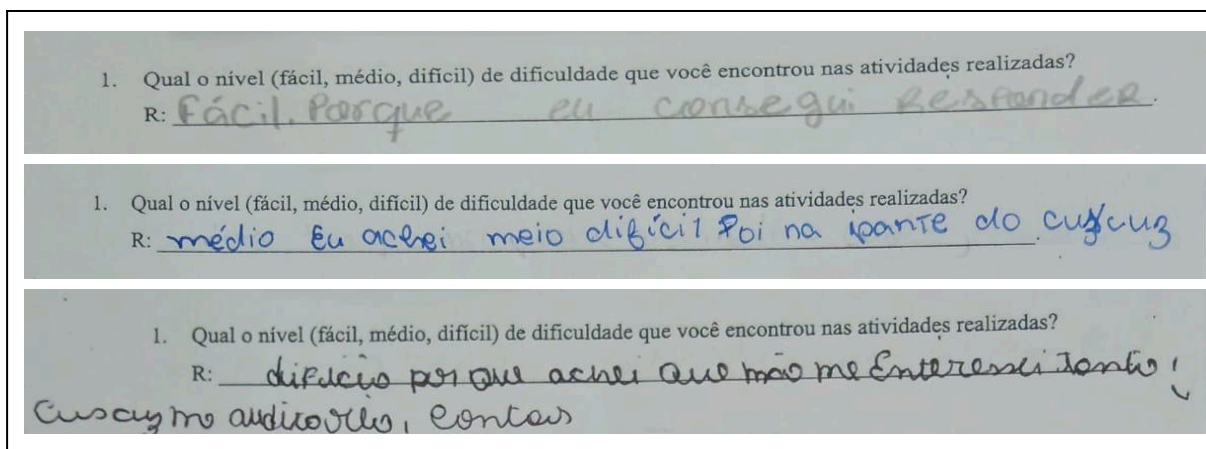 1. Qual o nível (fácil, médio, difícil) de dificuldade que você encontrou nas atividades realizadas?
R: Fácil. Porque eu consegui Responder.
1. Qual o nível (fácil, médio, difícil) de dificuldade que você encontrou nas atividades realizadas?
R: médio Eu achei meio difícil Foi na parte do cuzcuz
1. Qual o nível (fácil, médio, difícil) de dificuldade que você encontrou nas atividades realizadas?
R: por que achei que não me Enteressei tanto,
Cuscuz no